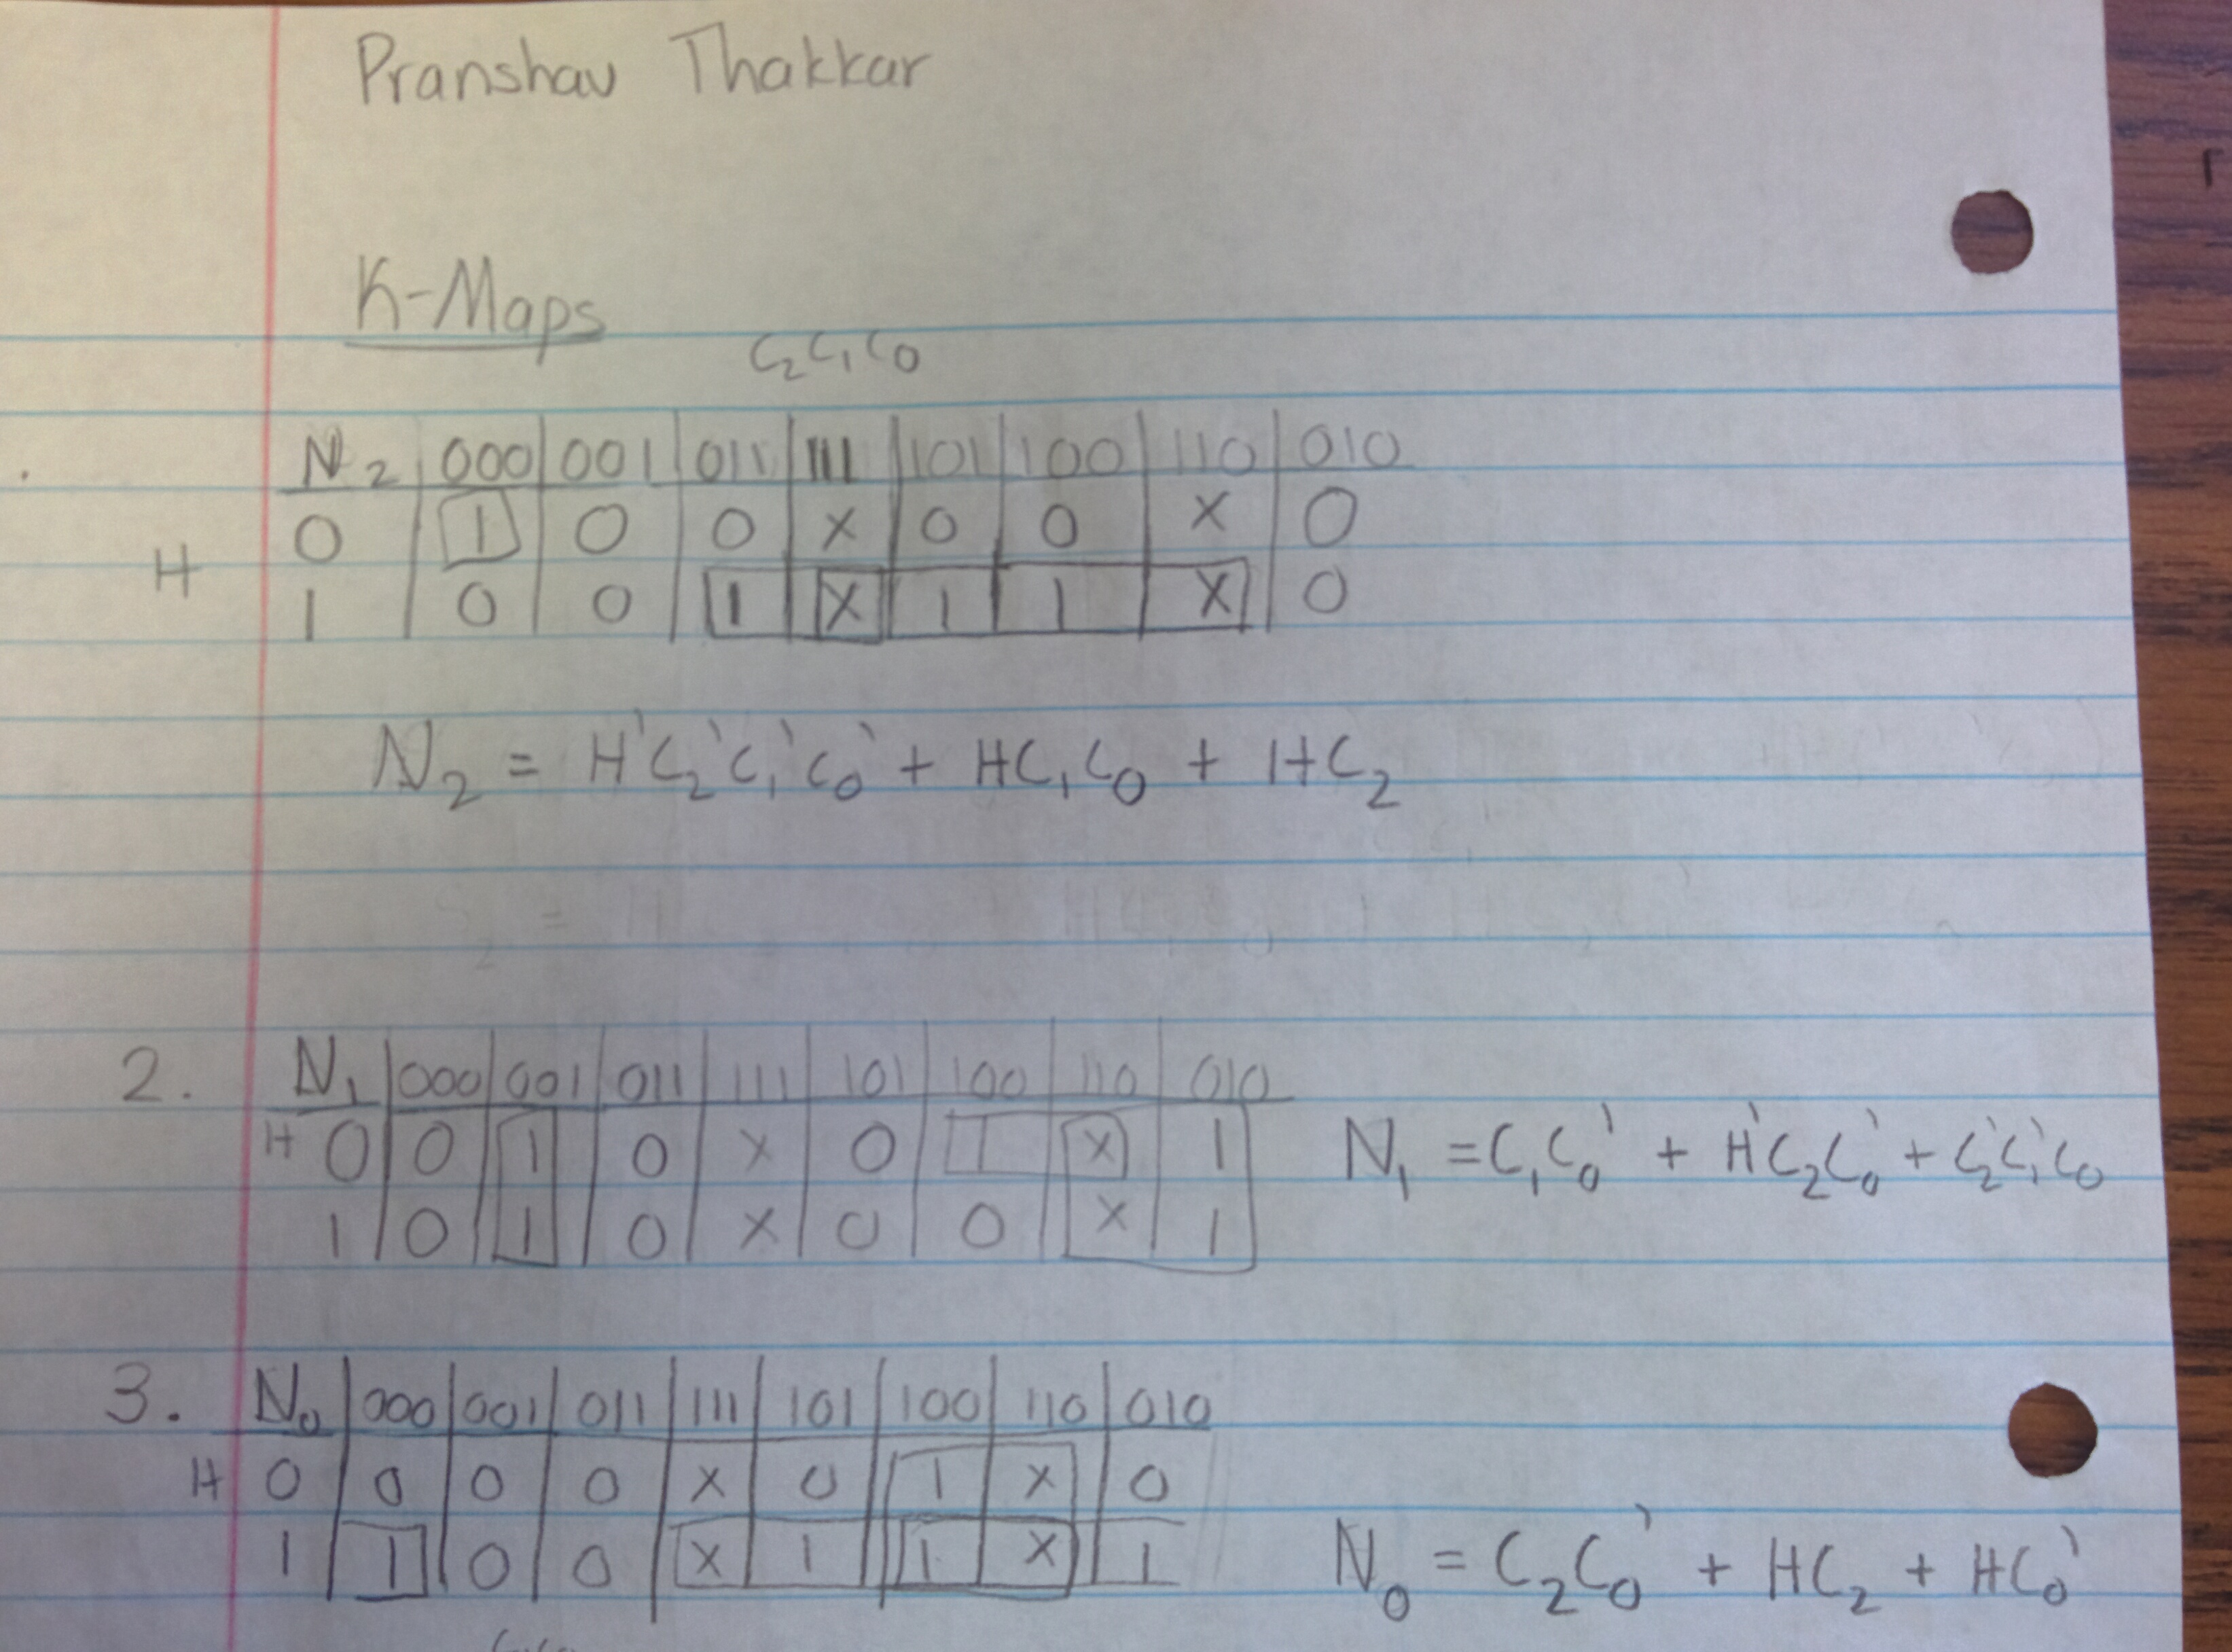 Pranshav Thakkar
K-Maps
C₂C₁C₀
N₂ 000 001 011 111 101 100 110 010
H 0 1 0 0 X 0 0 X 0
1 0 0 1 X 1 1 X 0
N₂ = H'C₂'C₁'C₀' + HC₁C₀ + HC₂
2. N₁ 000 001 011 111 101 100 110 010
H 0 0 1 0 X 0 1 X 1
1 0 1 0 X 0 0 X 1
N₁ = C₁C₀' + H'C₂C₀' + C₂'C₁'C₀
3. N₀ 000 001 011 111 101 100 110 010
H 0 0 0 0 X 0 1 X 0
1 1 0 0 X 1 1 X 1
N₀ = C₂C₀' + HC₂ + HC₀'